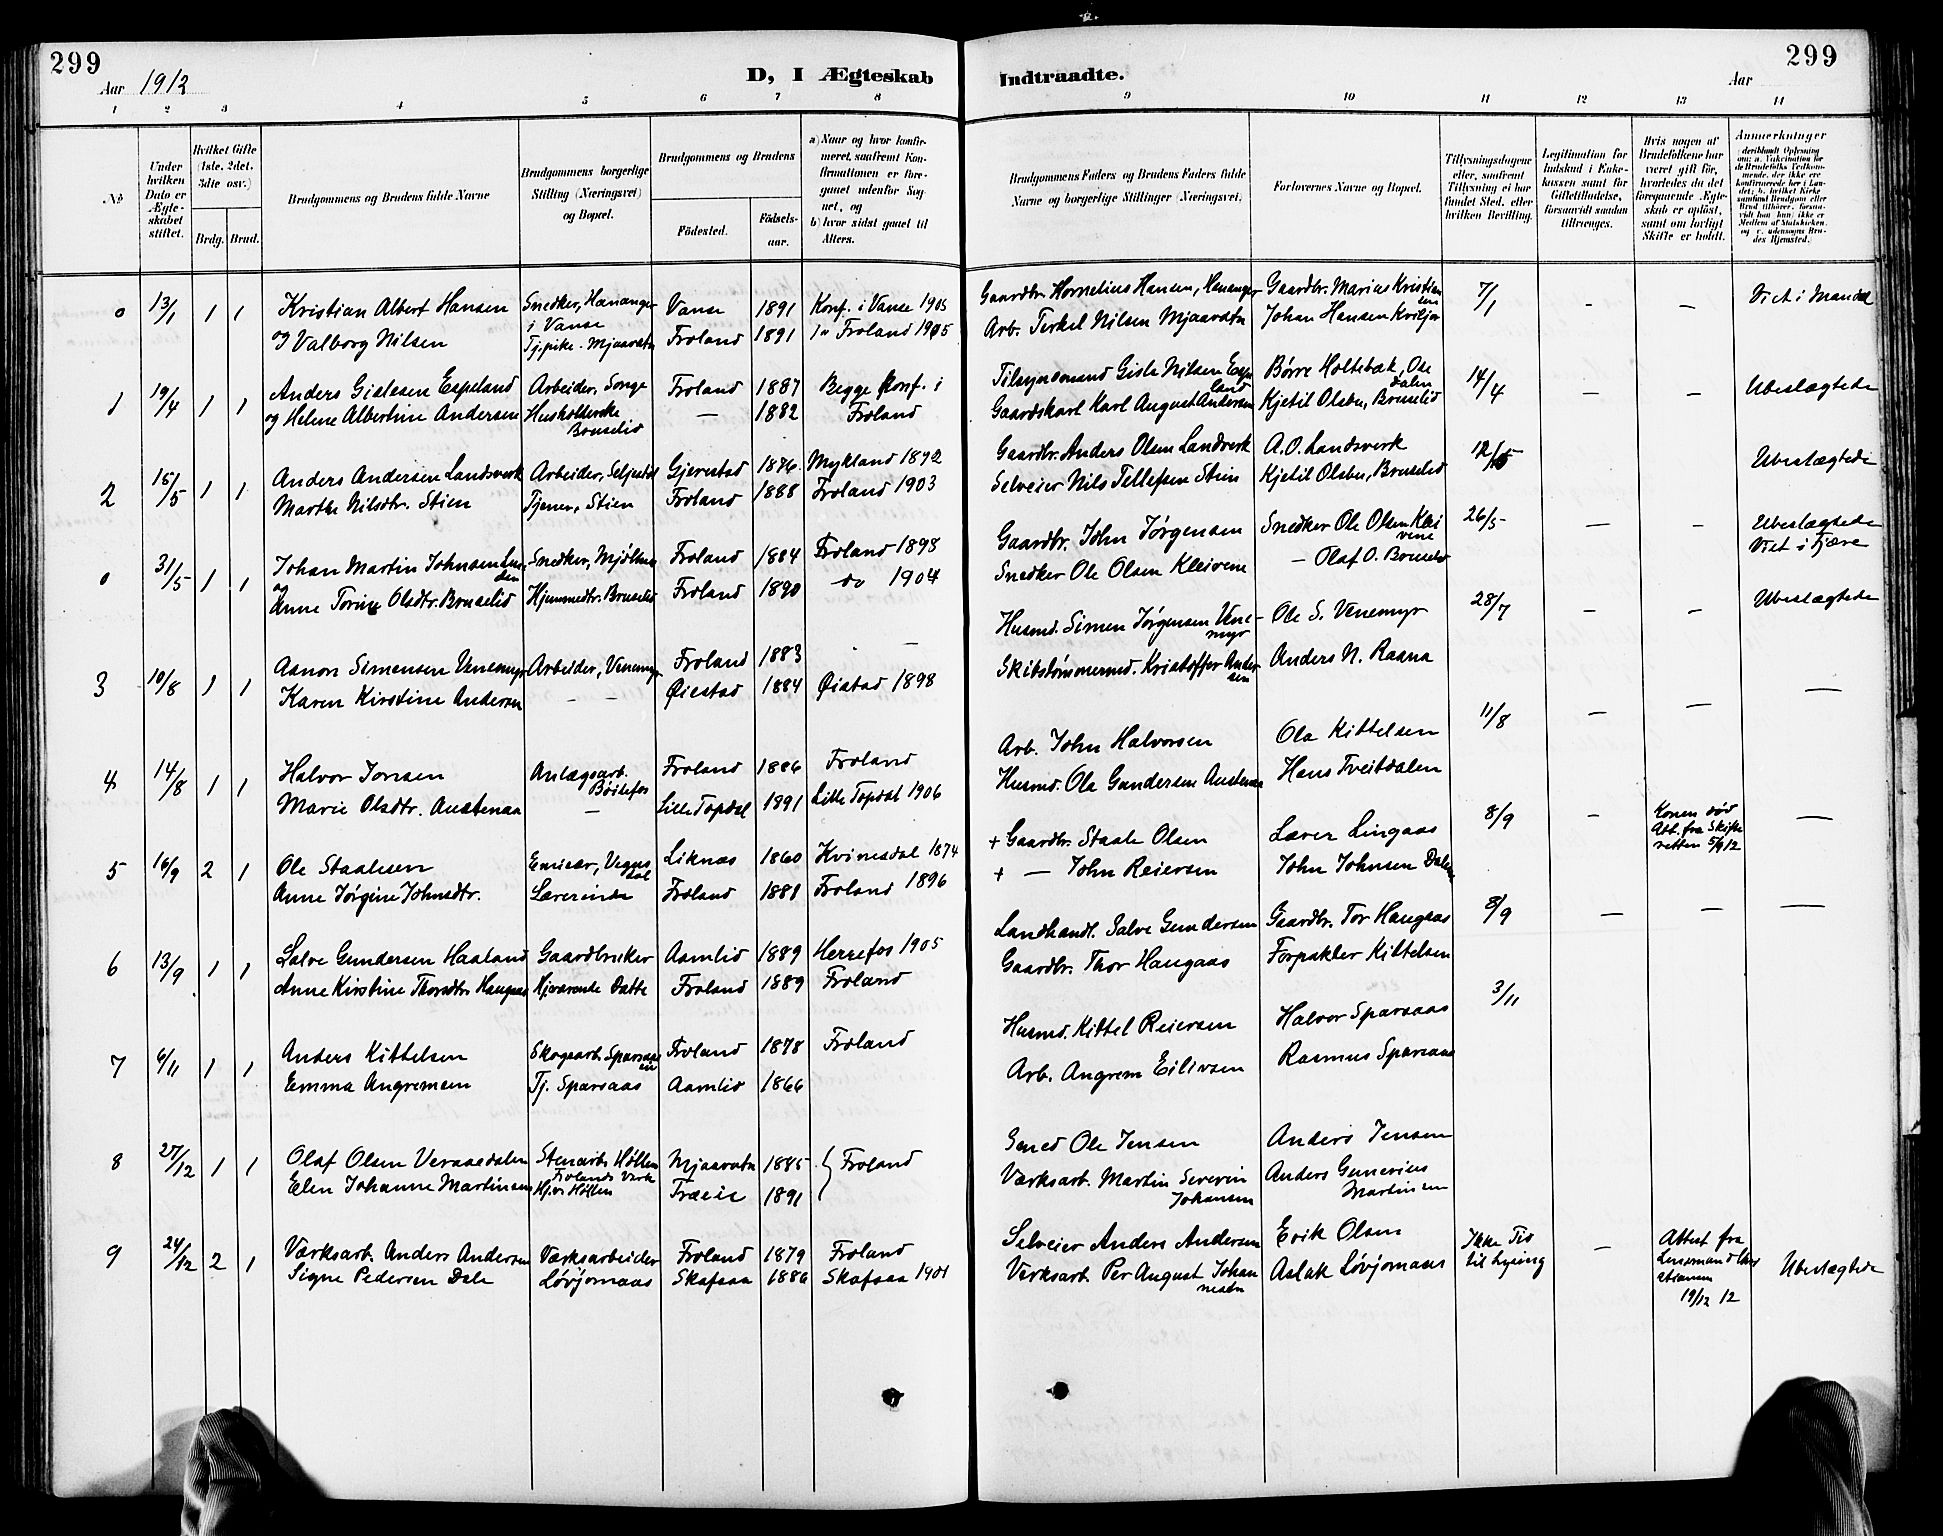 299
Aar 1912
D, I Ægteskab
Indtraadte.
Aar
299
1 2 3 4 5 6 7 8
9 10 11 12 13 14
No
Under hvilken Dato er Ægteskabet stiftet.
Hvilket Gifte (1ste, 2det, 3die osv.)
Brdg. Brud.
Brudgommens og Brudens fulde Navne
Brudgommens borgerlige Stilling (Næringsvei) og Bopæl.
Brudgommens og Brudens
Födested. Födselsaar.
a) Naar og hvor konfirmeret, saafremt Konfirmationen er foregaaet udenfor Sognet, og
b) hvor sidst gaaet til Alters.
Brudgommens Faders og Brudens Faders fulde Navne og borgerlige Stillinger (Næringsvei).
Forlovernes Navne og Bopæl.
Tillysningsdagene eller, saafremt Tillysning ei har fundet Sted, efter hvilken Bevilling.
Legitimation for Indskud i Enkekassen samt for Giftetilladelse, forsaavidt saadan tiltrænges.
Hvis nogen af Brudefolkene har været gift før, hvorledes da det foregaaende Ægteskab er opløst, samt om lovligt Skifte er holdt.
Anmerkninger
0 13/1 1 1 Kristian Albert Hansen Snedker, Hananger i Vanse Vanse 1891 Konf. i Vanse 1905
og Valborg Nilsen Tj.pike. Mjaavatn Froland 1891 " Froland 1905
Gaardbr. Kornelius Hansen, Hananger Gaardbr. Marius Kristiansen 7/1 - - Viet i Mandal
Arb. Terkel Nilsen Mjaavatn Johan Hansen Kviljo
1 19/4 1 1 Anders Gislesen Espeland Arbeider, Songe Froland 1887 Begge Konf. i
og Helene Albertine Andersen Husholderske Bruselid — 1882 Froland
Tilsynsmand Gisle Nilsen Espeland Børre Holtebæk, Osedalen 14/4 - - Ubeslægtede
Gaardskarl Karl August Andersen Kjetil Olsbu, Bruselid
2 15/5 1 1 Anders Andersen Landsverk Arbeider, Seljestøl Gjerestad 1876 Mykland 1892
Marthe Nilsdtr. Stien Tjener, Stien Froland 1888 Froland 1903
Gaardbr. Anders Olsen Landverk A. O. Landsverk 12/5 Ubeslægtede
Selveier Nils Tellefsen Stien Kjetil Olsbu, Bruselid
0 31/5 1 1 Johan Martin Johnsen Snedker, Mjølhus Froland 1884 Froland 1898
og Anne Torine Olsdtr. Bruselid Hjemmedtr. Bruselid Froland 1890 do 1904
Gaardbr. John Jørgensen Snedker Ole Olsen Kleivene 26/5 - - Ubeslægtede
Snedker Ole Olsen Kleivene — Olaf O. Bruselid Viet i Fjære
3 10/8 1 1 Aanon Simensen Venemyr Arbeider, Venemyr Froland 1883 —
Karen Kirstine Andersen — — Øiestad 1884 Øistad 1898
Husmd. Simen Jørgensen Venemyr Ole S. Venemyr 28/7 - - Ubeslægtede
Skibstømmermd. Kristoffer Andersen Anders N. Raana
4 14/8 1 1 Halvor Jonsen Anlægsarb. Bøilefos Froland 1886 Froland
Marie Olsdtr. Austenaa — Lille Topdal 1891 Lille Topdal 1906
Arb. John Halvorsen Ola Kittelsen 11/8 - - —
Husmd. Ola Gundersen Austenaa Hans Tveitdalen
5 16/9 2 1 Ole Staalesen Emisær, Vegusdal Liknes 1860 Kvinesdal 1874
Anne Jørgine Johnsdtr. Lærerinde Froland 1881 Froland 1896
+ Gaardbr. Staale Olsen Lærer Lingaas 8/9 - Konen død Att. fra Skifteretten 5/9 12 —
+ — John Reiersen John Johnsen Dale
6 13/9 1 1 Salve Gundersen Haaland Gaardbruker Aamlid 1889 Herrefos 1905
Anne Kirstine Thorsdtr Haugaas Hjværende Datte Froland 1889 Froland
Landhandl. Salve Gundersen Gaardbr. Tor Haugaas 8/9 — — —
Gaardbr. Thor Haugaas Forpakter Kittelsen
7 6/11 1 1 Anders Kittelsen Skogsarb. Sparsaasen Froland 1878 Froland
Emma Angremsen Tj. Sparsaas Aamlid 1866
Husmd. Kittel Reiersen Halvor Sparsaas 3/11
Arb. Angrem Eilivsen Rasmus Sparsaas
8 27/12 1 1 Olaf Olsen Veraasdalen Stenarb. Hølten Frolands Verk Mjaavatn 1885 Froland
Elen Johanne Martinsen Hjv. Hølten Træeie 1891
Smed Ole Jensen Anders Jensen
Værksarb. Martin Severin Johansen Anders Gunerius Martinsen
9 24/12 2 1 Værksarb. Anders Andersen Værksarbeider Froland 1879 Froland
Signe Pedersen Dale Løvjomaas Skafsaa 1886 Skafsaa 1901
Selveier Anders Andersen Erik Olsen Ikke Tid til Lysing — Attest fra Lensmand 19/12 12 Ubeslægtede
Verksarb. Per August Johannesen Aslak Løvjomaas